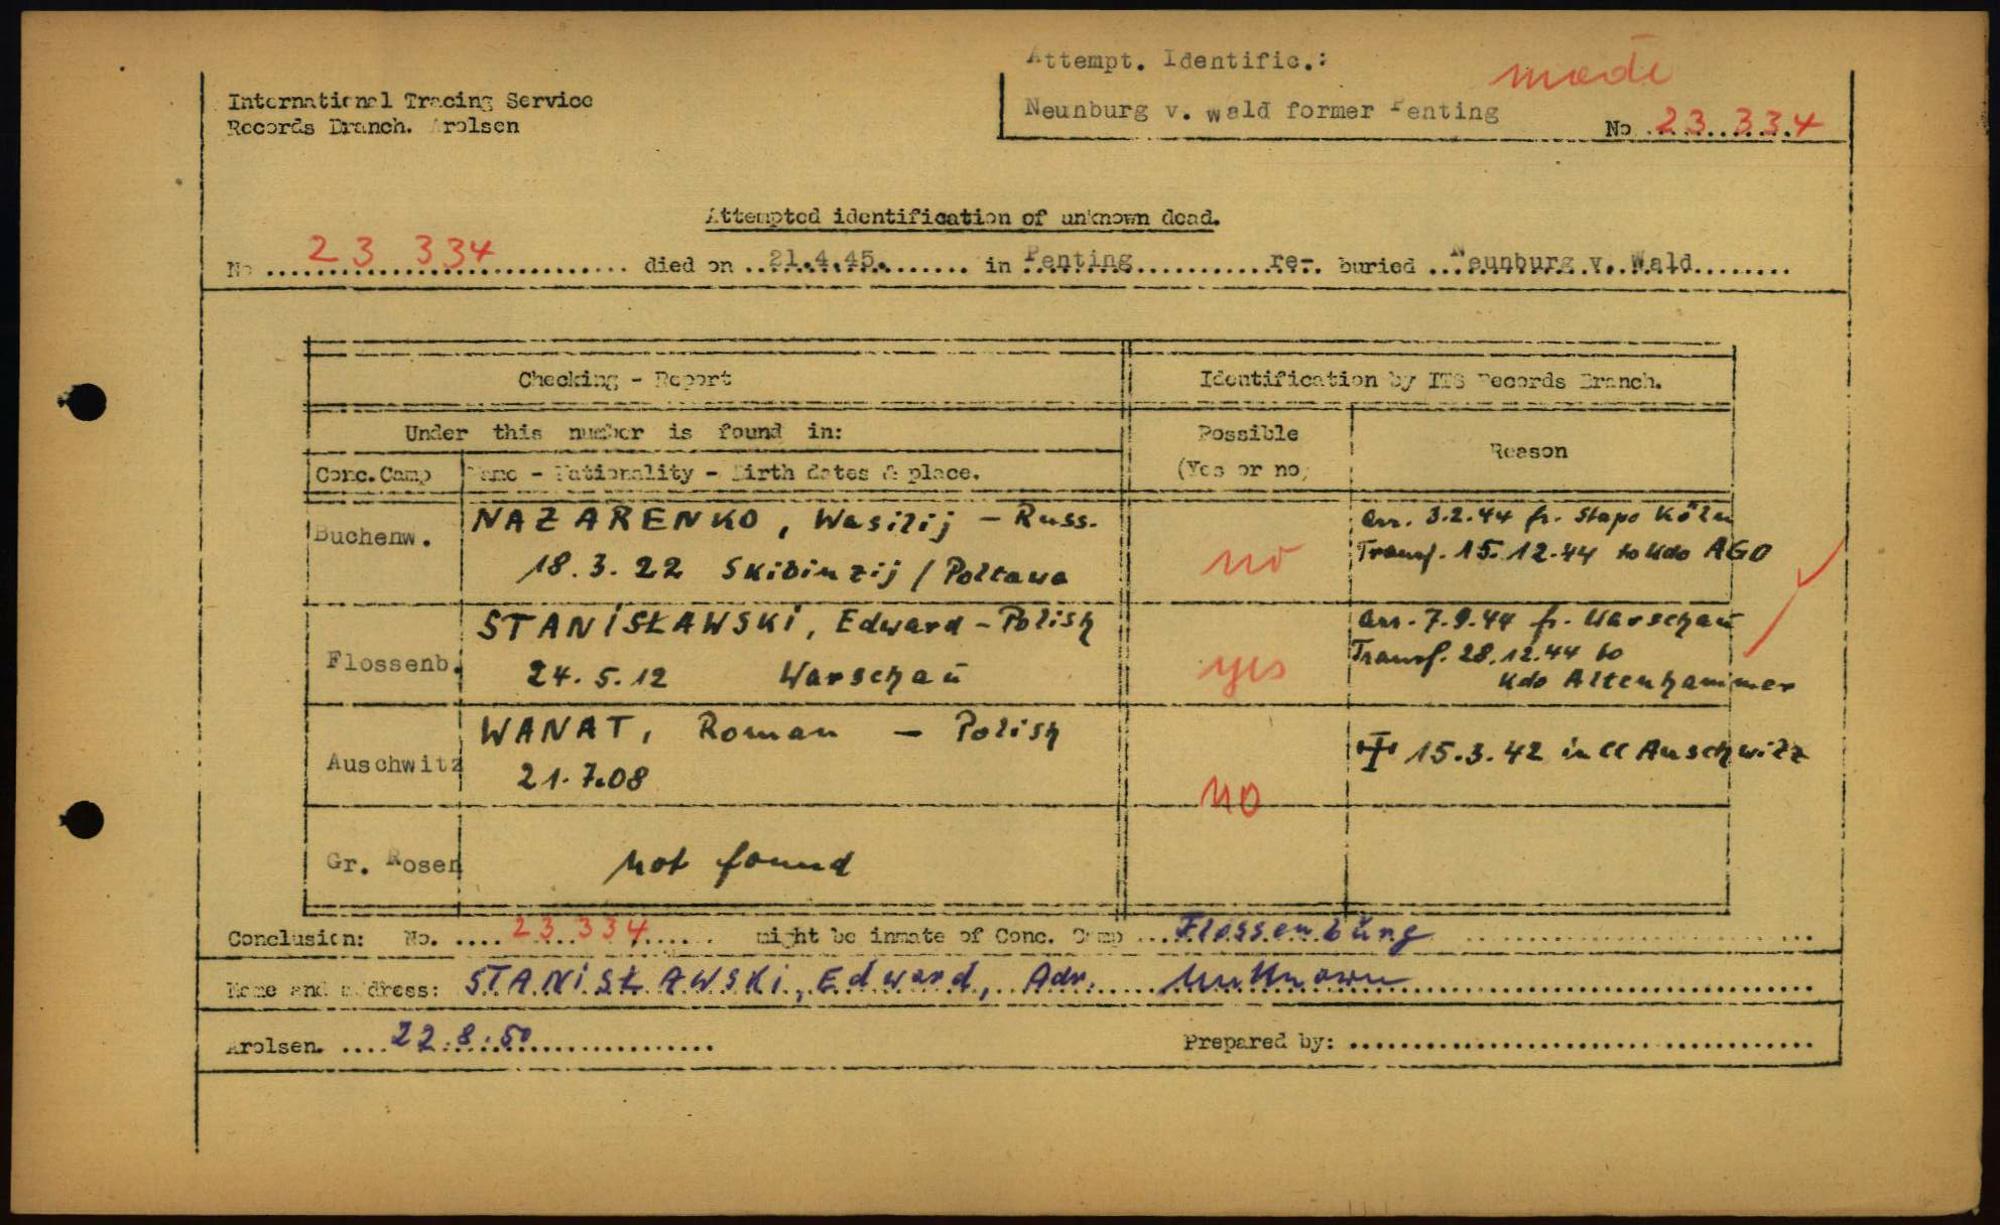 Attempt. Identific.:
made
International Tracing Service
Records Branch. Arolsen
Neunburg v. wald former Penting
No 23 334
Attempted identification of unknown dead.
No 23 334 died on 21.4.45. in Penting re-buried Neunburg v. Wald
Checking - Report
Identification by ITS Records Branch.
Under this number is found in:
Possible
(Yes or no)
Reason
Conc.Camp
Name - Nationality - Birth dates & place.
Buchenw.
NAZARENKO, Wasilij - Russ.
18.3.22 Skibinzij / Poltawa
no
arr. 3.2.44 fr. Stapo Köln
Transf. 15.12.44 to Kdo AGO
Flossenb.
STANISŁAWSKI, Edward - Polish
24.5.12 Warschau
yes
arr. 7.9.44 fr. Warschau
Transf. 28.12.44 to
Kdo Altenhammer
Auschwitz
WANAT, Roman - Polish
21.7.08
no
15.3.42 in CC Auschwitz
Gr. Rosen
not found
Conclusion: No. 23 334 might be inmate of Conc. Camp Flossenbürg
Name and address: STANISŁAWSKI, Edward, Adr. unknown
Arolsen. 22.8.50
Prepared by: